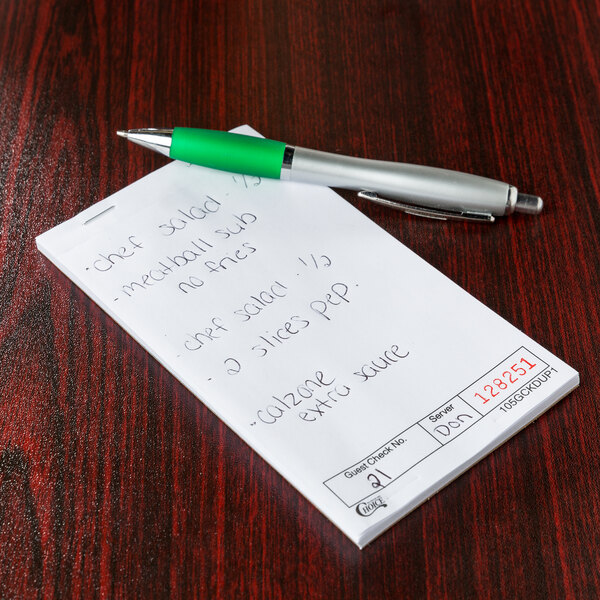 - chef salad · 1/2
- meatball sub
no fries
- chef salad · 1/2
- 2 slices pep.
- calzone
extra sauce
Guest Check No.
21
Server
Don
128251
105GCKDUP1
CHOICE